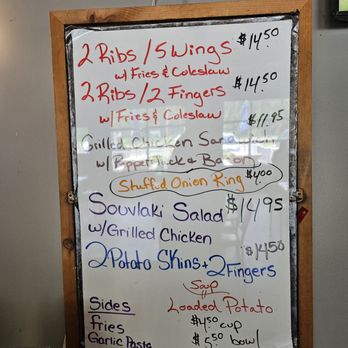 2 Ribs / 5 Wings $14.50
w/ Fries & Coleslaw
2 Ribs / 2 Fingers $14.50
w/ Fries & Coleslaw
Grilled Chicken Sandwich $11.95
w/ Pepper Jack & Bacon
Stuffed Onion Ring $4.00
Souvlaki Salad $14.95
w/ Grilled Chicken
2 Potato Skins + 2 Fingers $14.50
Soup
Loaded Potato
$4.50 cup
$5.50 bowl
Sides
Fries
Garlic Pasta